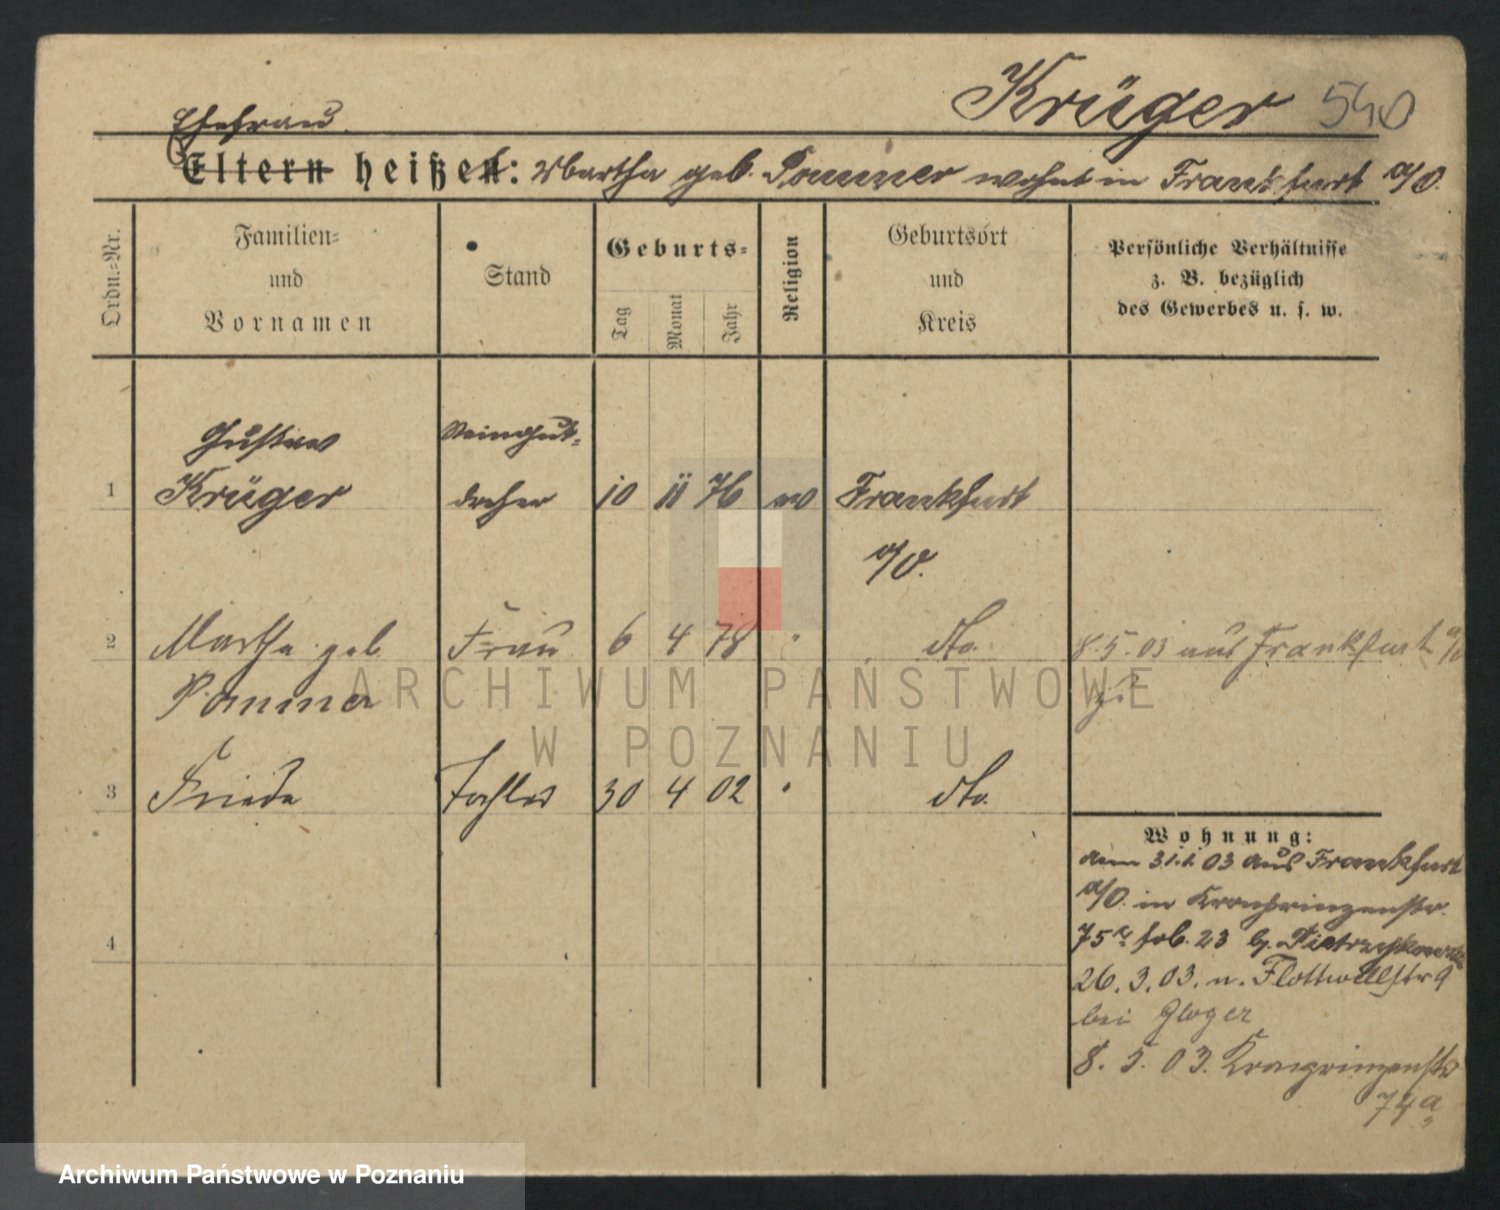 Krüger 540
Ehefrau
Eltern heißen: Martha geb. Pommer wohnt in Frankfurt a/O.
Ordn.=Nr.
Familien=
und
Vornamen
Stand
Geburts=
Tag
Monat
Jahr
Religion
Geburtsort
und
Kreis
Persönliche Verhältnisse
z. B. bezüglich
des Gewerbes u. s. w.
Gustav Steingut-
1 Krüger dreher 10 11 76 ev Frankfurt
a/O.
2 Martha geb. Frau 6 4 78 " dto. 8.5.03 aus Frankfurt a/O
Pommer
3 Frieda Tochter 30 4 02 " dto.
Wohnung:
31.1.03 aus Frankfurt
a/O. in Kronprinzenstr.
75 23 b.
4
26.3.03. n. Flottwellstr 9
bei Gloger
8.5.03. Kronprinzenstr
74a
ARCHIWUM PAŃSTWOWE
W POZNANIU
Archiwum Państwowe w Poznaniu